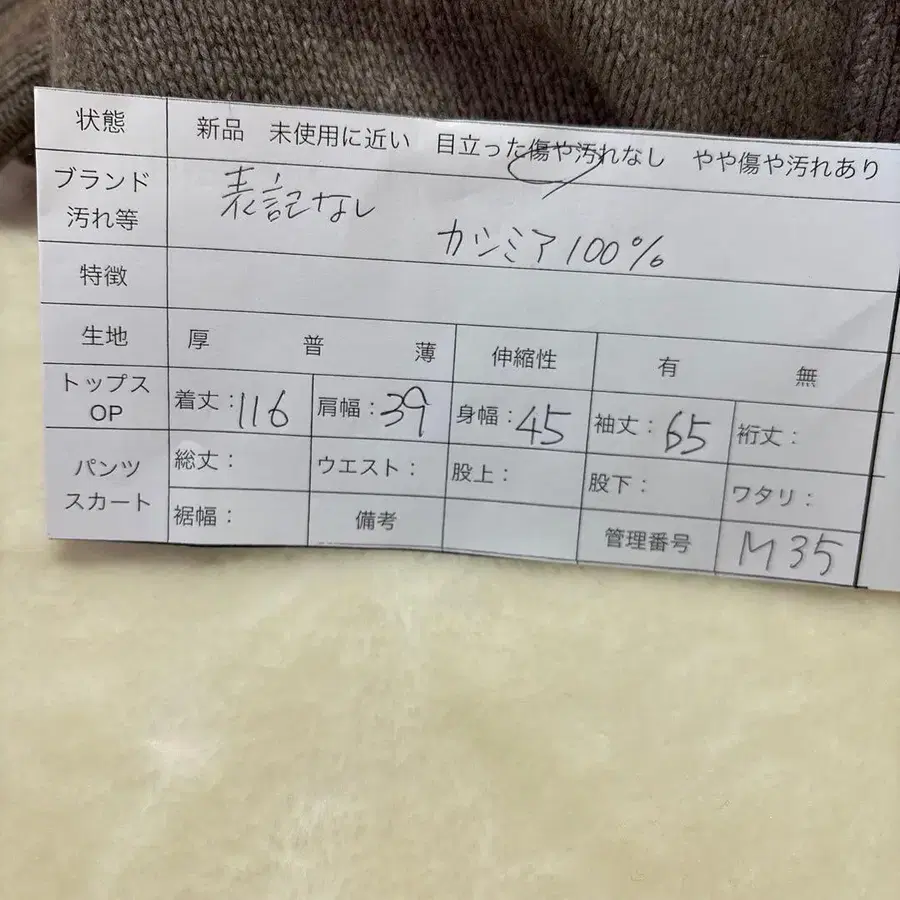 状態 新品 未使用に近い 目立った傷や汚れなし やや傷や汚れあり
ブランド 表記なし
汚れ等 カシミア100%
特徴
生地 厚 普 薄 伸縮性 有 無
トップス OP 着丈:116 肩幅:39 身幅:45 袖丈:65 裄丈:
パンツ スカート 総丈: ウエスト: 股上: 股下: ワタリ:
裾幅: 備考 管理番号 M35